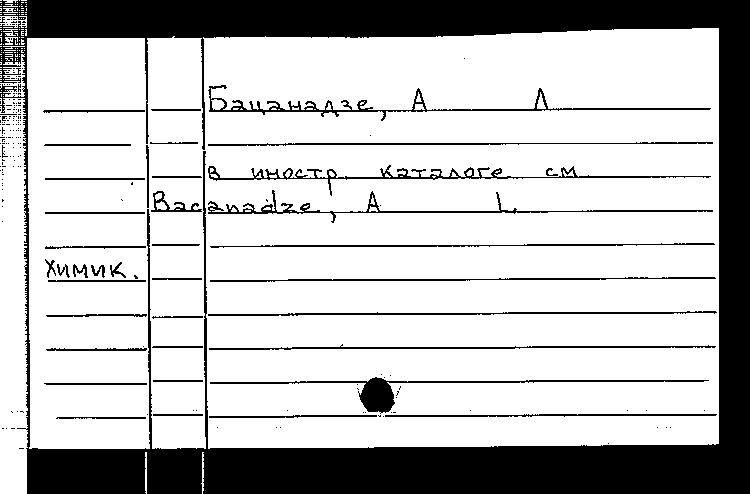 Бацанадзе, А Л
в иностр. каталоге см
Bacanadze, A L.
химик.